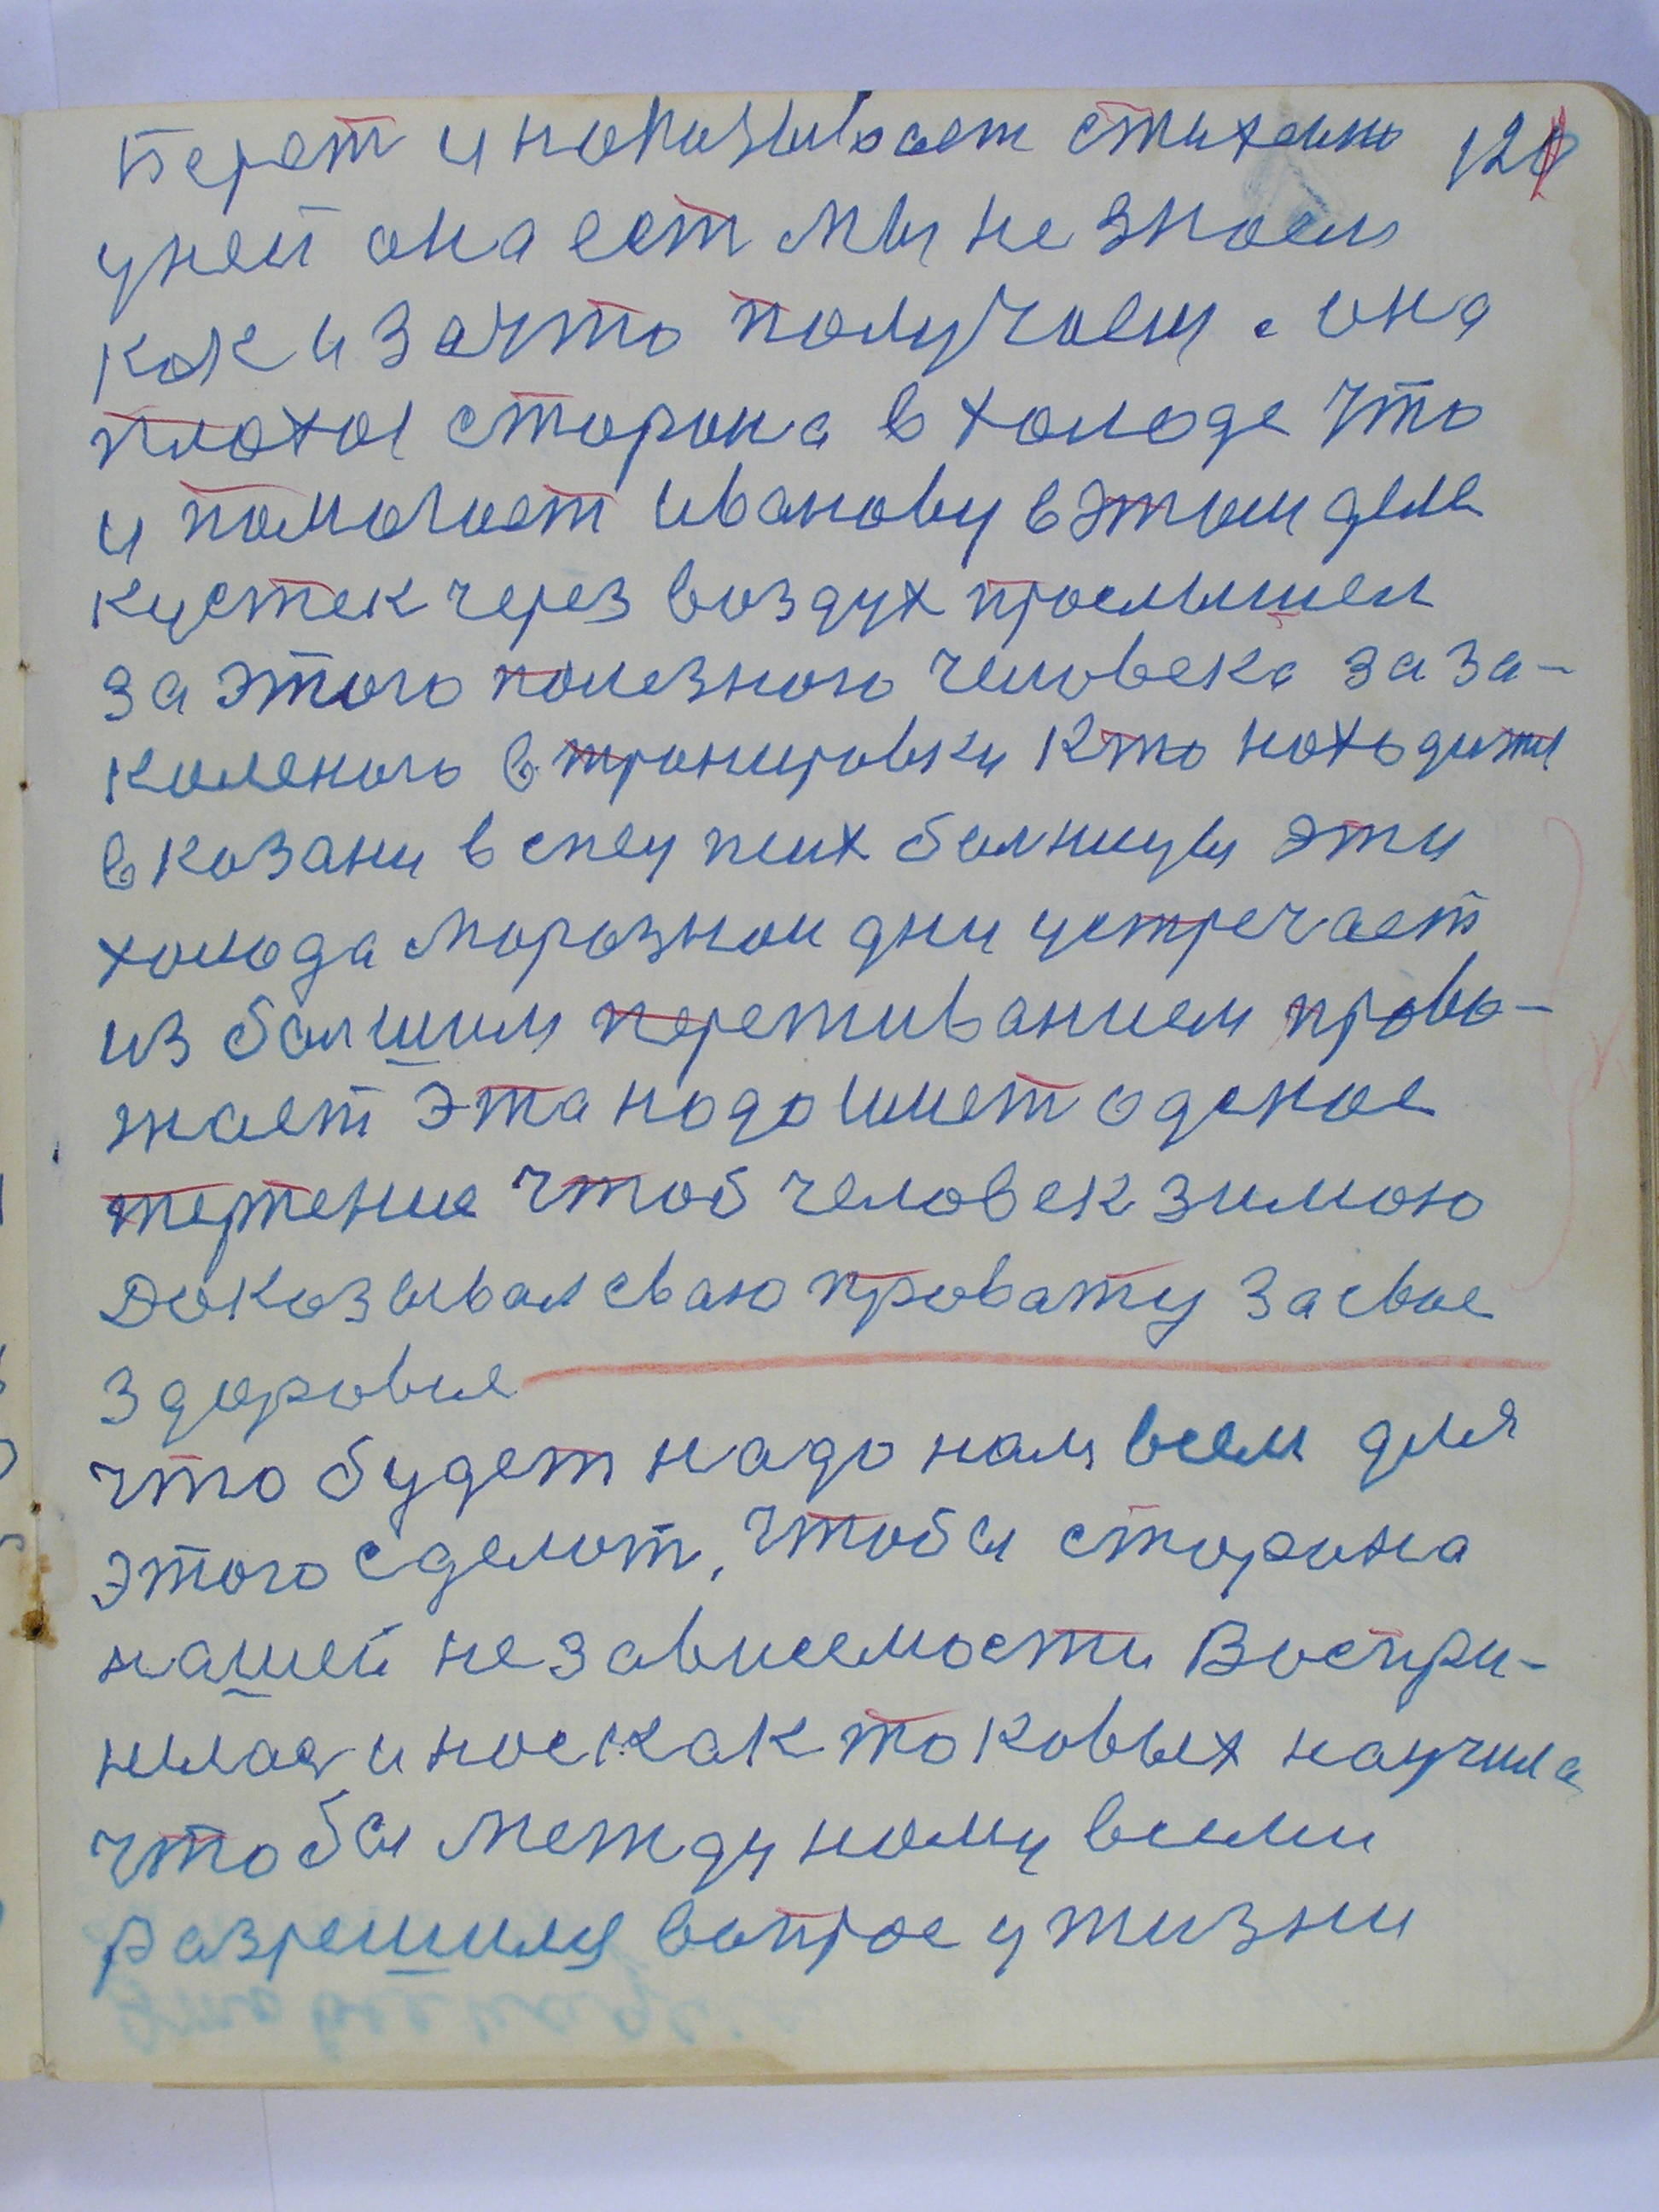 Берет и наказывает стихеино 121
уней она ест мы не знаем
как и зачто получаем. она
плохая сторона в холоде что
и помогает иванову вэтом деле
кустек через воздух прослышел
за этого полезного человека за за-
каленого в тронировки кто находитя
в казани в спец псих болницы эти
холода морозной дни устречает
из болшим перетиванием провы-
жает эта надо имет одское
тертение чтоб человек зимою
Доказывал сваю провату за свое
здоровие
что будет надо нам всем для
этого сделот, чтобы сторона
нашей независемости Воспри-
нилас и нас как таковых научила
чтобы мемду наму всеми
разрешился вопрос у жизни